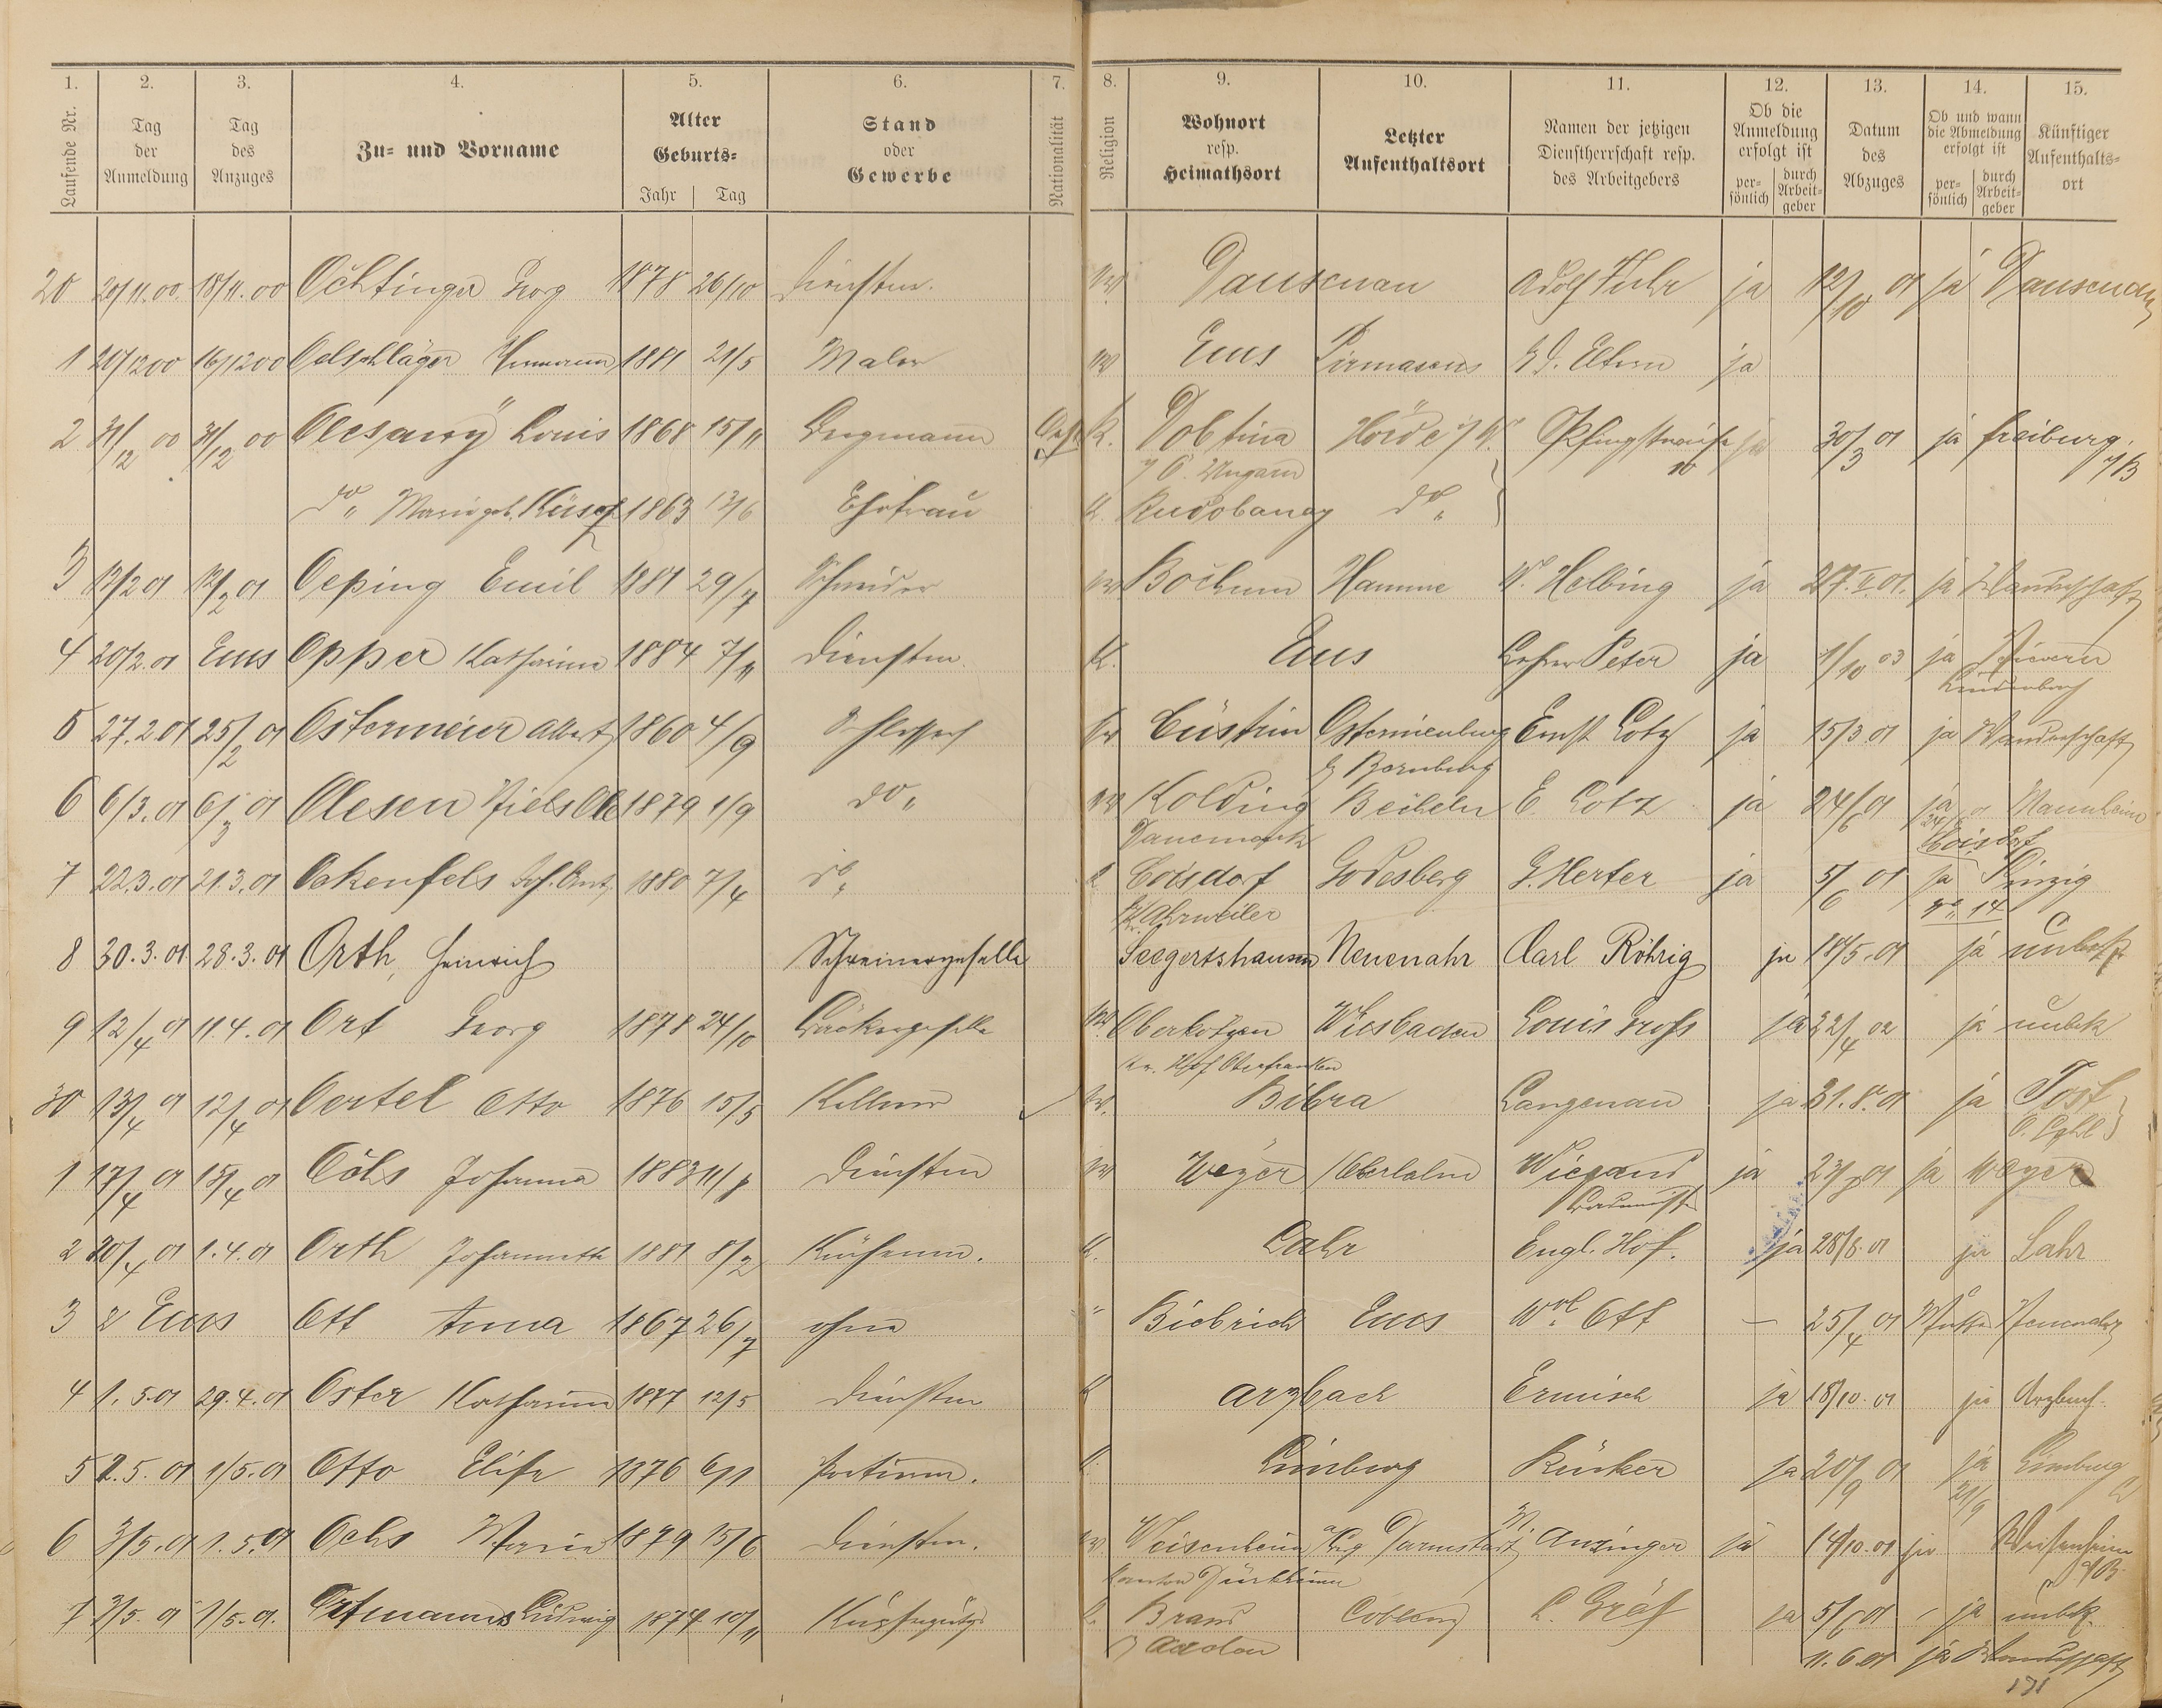 1. 2. 3. 4. 5. 6. 7. 8. 9. 10. 11. 12. 13. 14. 15.
Laufende Nr. Tag der Anmeldung Tag des Anzuges Zu- und Vorname Alter Geburts- Jahr Tag Stand oder Gewerbe Nationalität Religion Wohnort resp. Heimathsort Letzter Aufenthaltsort Namen der jetzigen Dienstherrschaft resp. des Arbeitgebers Ob die Anmeldung erfolgt ist per- sönlich durch Arbeit- geber Datum des Abzuges Ob und wann die Abmeldung erfolgt ist per- sönlich durch Arbeit- geber Künftiger Aufenthalts- ort
20 20/11.00. 18/11.00 Georg 1878 26/10 Dienstm. Dausenau Adolf ja 12/10 01 ja Dausenau
1 20/12 00 16/12 00 Oelschläger Hermann 1881 21/5 Maler Ems Pirmasens Eltern ja
2 31/12 00 31/12 00 Louis 1868 15/11 Bergmann K. Dobtina Hörde Pfingststrasse ja 30/3 01 ja Freiburg
10 i/B
Ungarn
do Marie geb. 1863 Ehefrau K. Rudobanay do
3 12/2 01 12/2 01 Oeping Emil 1881 29/7 Schneider Bochum Hamme W. Helbing ja 27.II.01. ja Wanderschaft
4 20/2.01 Ems Opper Katharina 1884 7/11 Dienstm. K. Ems Lehrer Peter ja 1/10 03 ja Nievern
Lindenbach
5 27.2.01 25/2 01 Ostermeier Albert 1860 4/9 Schlosser Cüstrin Osternienburg Ernst Lotz ja 15/3.01 ja Wanderschaft
b/ Bernburg
6 6/3.01 6/3 01 Olesen Niels Ole 1879 1/9 do Kolding E. Lotz ja 24/6 01 ja Mannheim
Danemark
7 22.3.01 21.3.01 Ockenfels Joh. 1880 7/4 do K Coisdorf Godesberg G. Herter ja 5/6 01 ja Coisdorf Sinzig
Ahrweiler No 14
8 30.3.01 28.3.01 Orth, Heinrich Schreinergeselle Seegertshausen Neuenahr Carl Röhrig ja 18/5.01 ja unbek.
9 12/4 01 11.4.01 Ort Georg 1878 24/10 Bäckergeselle Oberkotzau Wiesbaden Louis Gross ja 22/4 02 ja unbek
Kr. Hof Oberfranken
30 13/4 01 12/4 01 Oertel Otto 1876 15/5 Kellner Bibra Langenau ja 31.8.01 ja Tost
O. Schl.
1 17/4 01 15/4 01 Johanna 1883 11/8 Dienstm Weyer /Oberlahn Wiegand ja 01 ja Weyer
2 20/4 01 1.4.01 Orth Johannette 1881 8/2 Köchinn. K. Lahr Engl. Hof. ja 28/8.01 ja Lahr
3 Ems Ott Anna 1867 26/7 ohne " Biebrich Ems Ott — 25/4 01 Neuenahr
4 1.5.01 29.4.01 Oster Katharina 1877 12/5 Dienstm K Arzbach Ermisch ja 18/10.01 ja Arzbach
5 2.5.01 1/5.01 Otto Elise 1876 6/1 K. Limburg Rücker ja 20/9 01 ja Limburg
21/9
6 3/5.01 1.5.01 Ochs Maria 1879 15/6 Dienstm. Weisenheim a/Berg Darmstadt Anzinger ja 14/10.01 ja Weisenheim
Kanton Dürkheim a/B.
7 3/5.01 1/5.01. Ortmanns Ludwig 1874 10/11 K. Brand Coblenz L. Gräf ja 5/6 01 ja unbek.
b/ Aachen
11.6.01 ja Wanderschaft
171